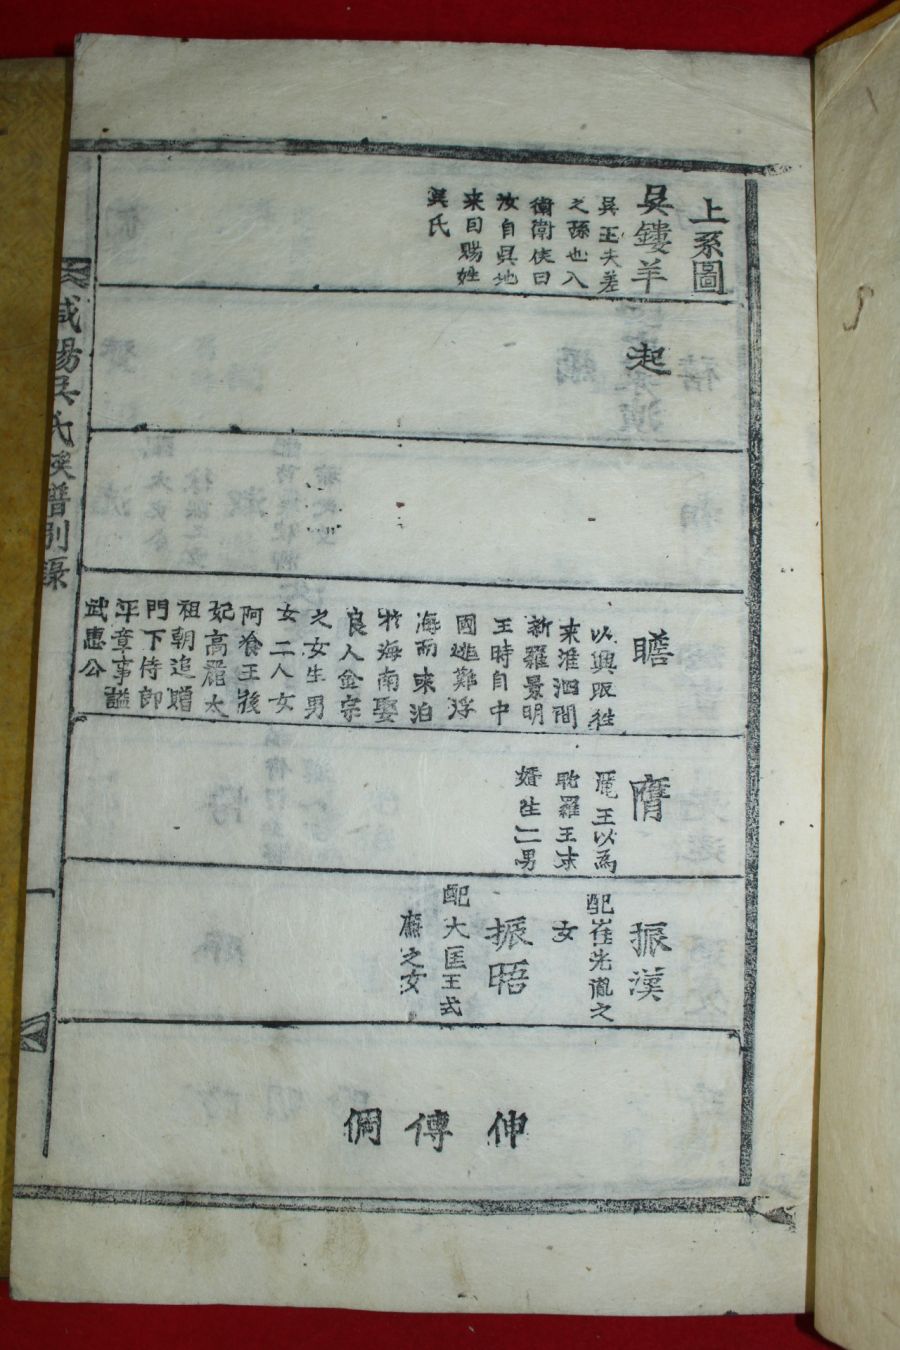 上系圖
吳鏤羊
吳王夫差
之孫也入
衛衛侯曰
汝自吳地
來曰賜姓
吳氏
起
瞻
以興販往
來淮泗間
新羅景明
王時自中
國逃難浮
海而來泊
於海南娶
良人金宗
之女生男
女二人女
阿飱王後
妃高麗太
祖朝追贈
門下侍郎
平章事謚
武惠公
膺
麗王以爲
耽羅王求
婚生二男
振漢
配崔先胤之
女
振晤
配大匡王式
廉之女
伸
傳
倜
咸陽吳氏族譜別錄